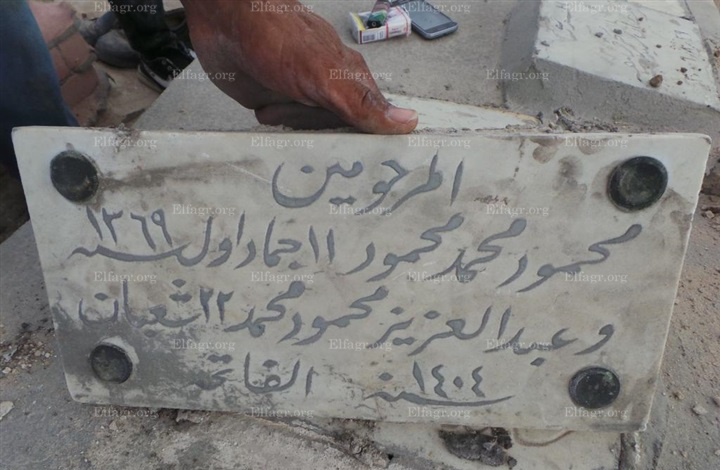 المرحومين
محمود محمد محمود ١١ جماد اول سنة ١٣٦٩
و عبد العزيز محمود محمد ٢٢ شعبان
سنة ١٤٠٤ الفاتحه
Elfagr.org